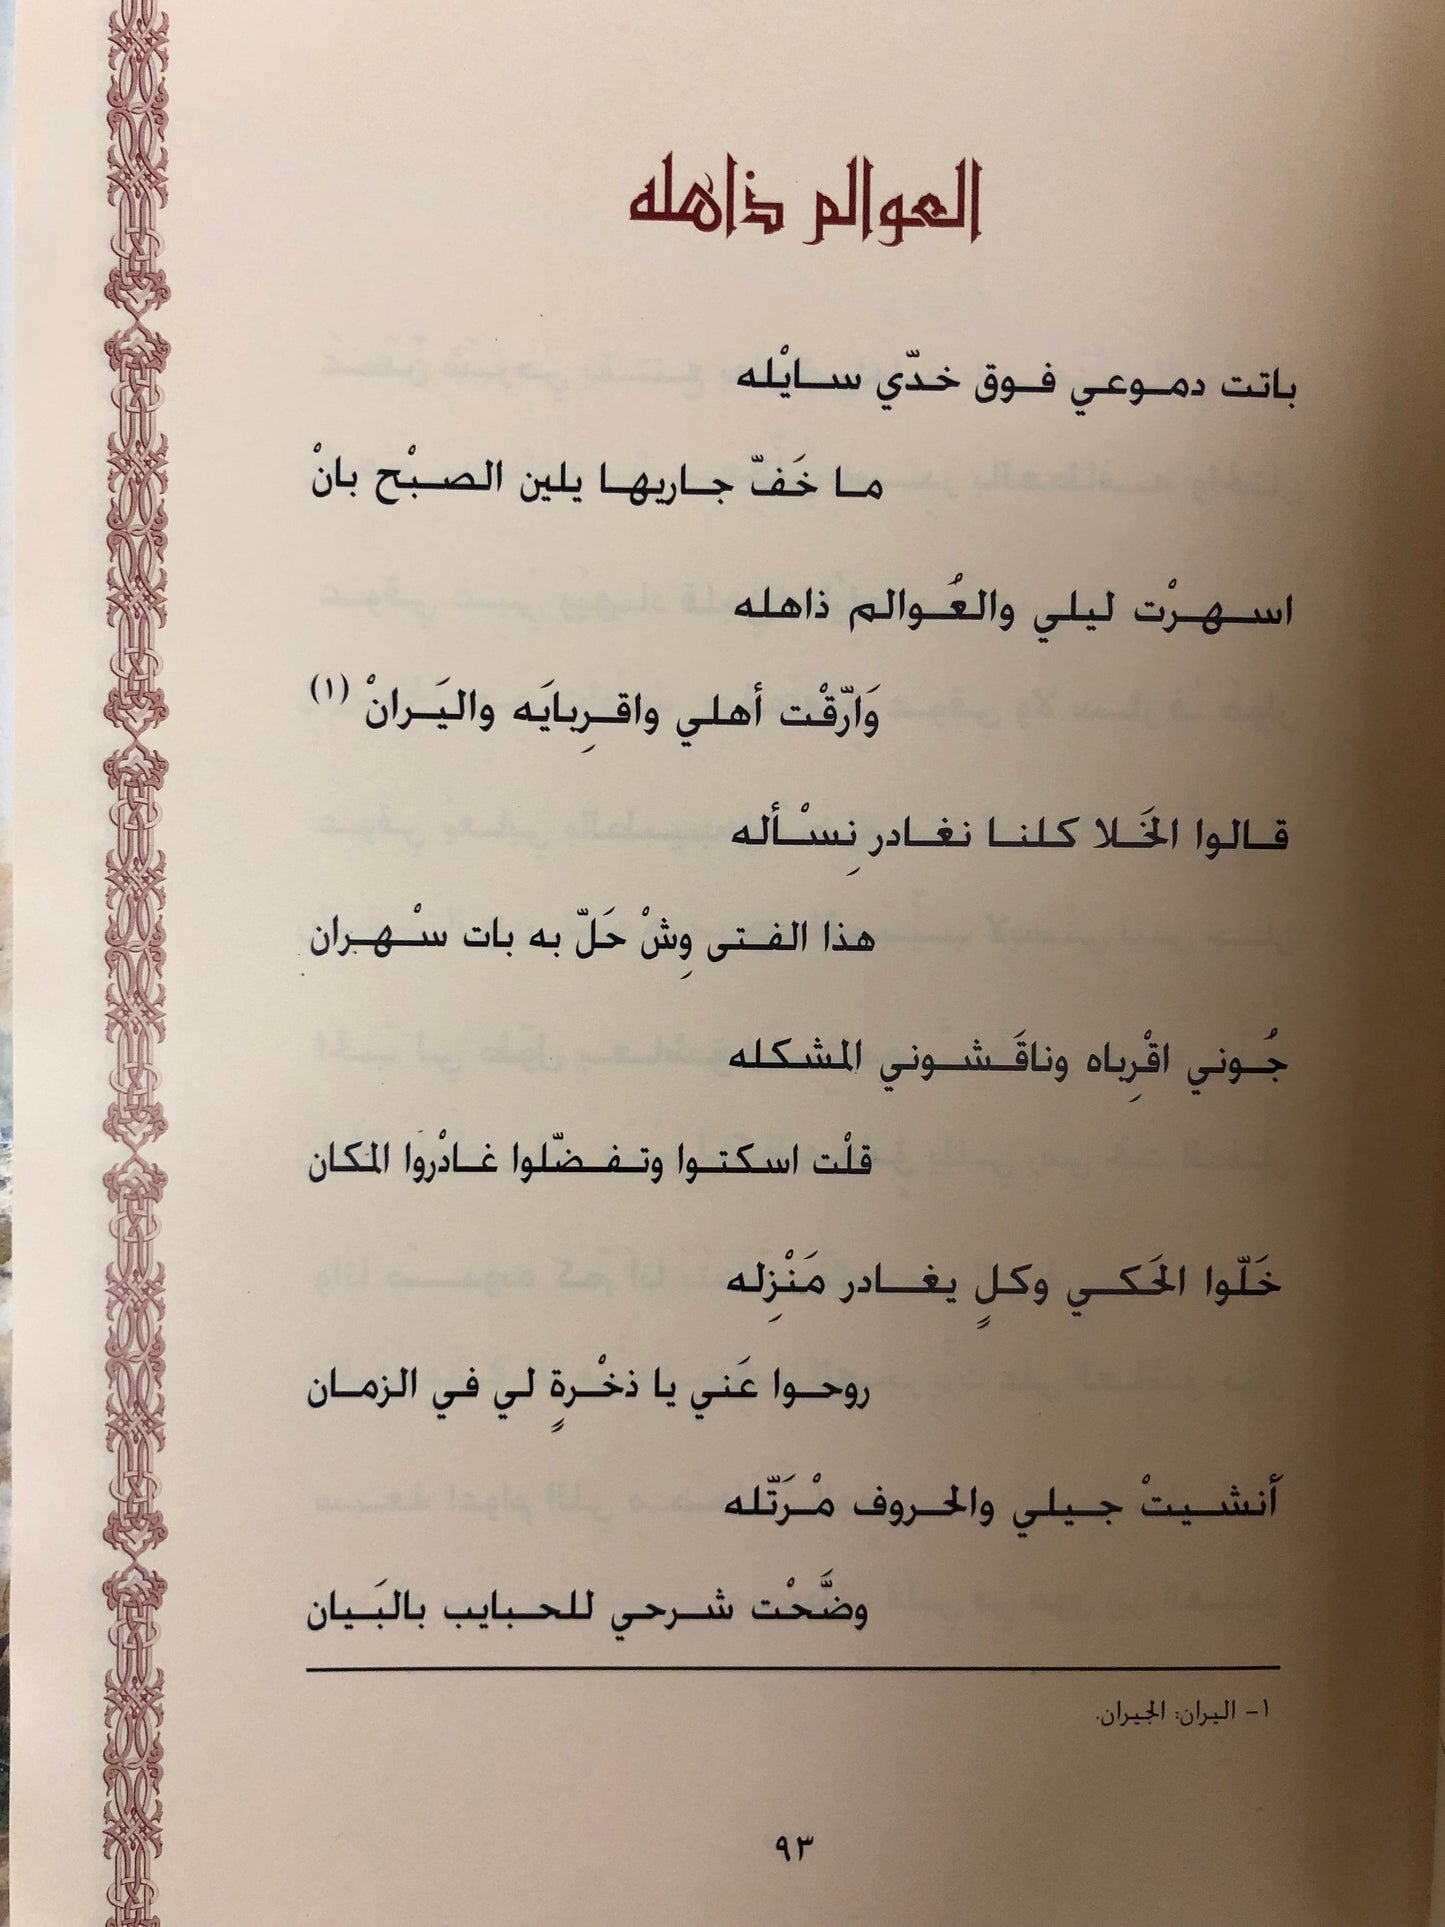 العوالم ذاهله
باتت دمـوعي فـوق خـدّي سـايْله
مـا خَـفّ جـاريهـا يلين الصـبْح بانْ
اسـهـرْت ليلي والعُـوالم ذاهله
وَارّقْت أهلي واقـرِبايَه واليَـرانْ (١)
قـالوا الخَـلا كلنـا نغـادر نِسْـأله
هذا الفـتى وِشْ حَلّ به بات سْـهـران
جُـوني اقْرِباه وناقَـشـوني المشكله
قلْت اسكتـوا وتـفـضّلوا غـادْروا المكان
خَلّوا الحَكي وكلٍ يغـادر مَنْزِله
روحـوا عَني يا ذخْـرةٍ لي في الزمـان
أنشـيتْ جـيلي والحـروف مْرَتّله
وضَّحْت شـرحي للحـبايب بالبَـيان
١- اليران: الجيران.
٩٣